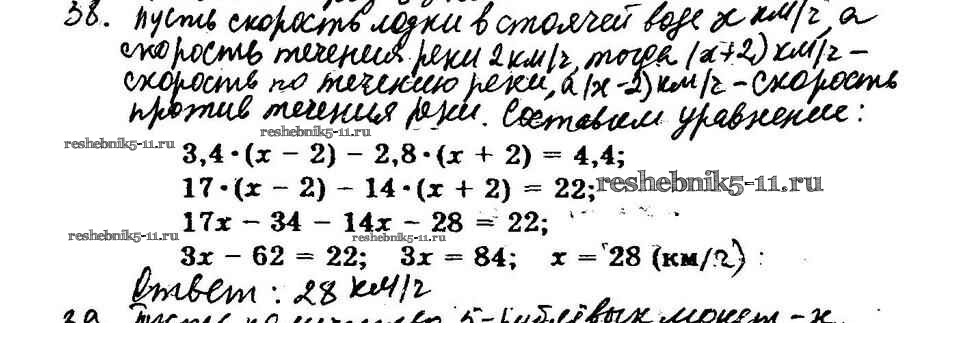 38. Пусть скорость лодки в стоячей воде x км/ч, а
скорость течения реки 2 км/ч, тогда (x+2) км/ч –
скорость по течению реки, а (x-2) км/ч – скорость
против течения реки. Составим уравнение:
reshebnik5-11.ru
reshebnik5-11.ru
3,4·(x − 2) − 2,8·(x + 2) = 4,4;
17·(x − 2) − 14·(x + 2) = 22;
reshebnik5-11.ru
17x − 34 − 14x − 28 = 22;
reshebnik5-11.ru
reshebnik5-11.ru
3x − 62 = 22; 3x = 84; x = 28 (км/ч)
Ответ: 28 км/ч
39. Пусть количество 5-рублёвых монет – x